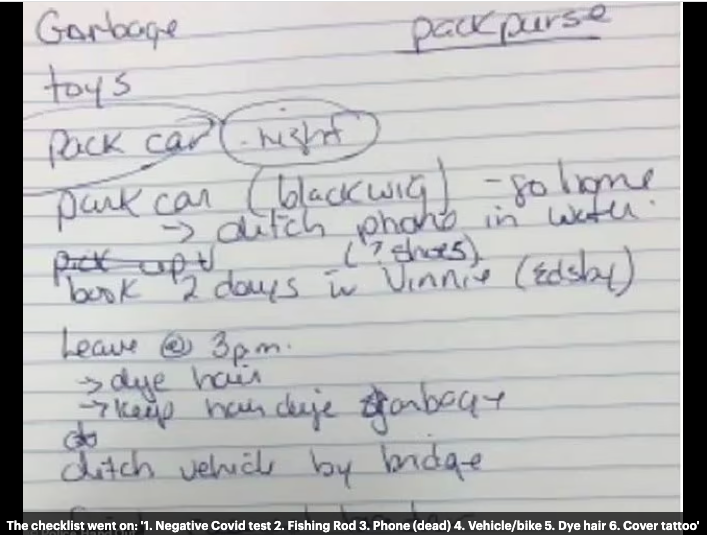 Garbage
pack purse
toys
pack car night
park car (black wig) - go home
→ ditch phone in water.
(? shoes)
book 2 days in Vinnie
Leave @ 3pm.
→ dye hair
→ keep hair dye garbage
do
ditch vehicle by bridge
The checklist went on: '1. Negative Covid test 2. Fishing Rod 3. Phone (dead) 4. Vehicle/bike 5. Dye hair 6. Cover tattoo'